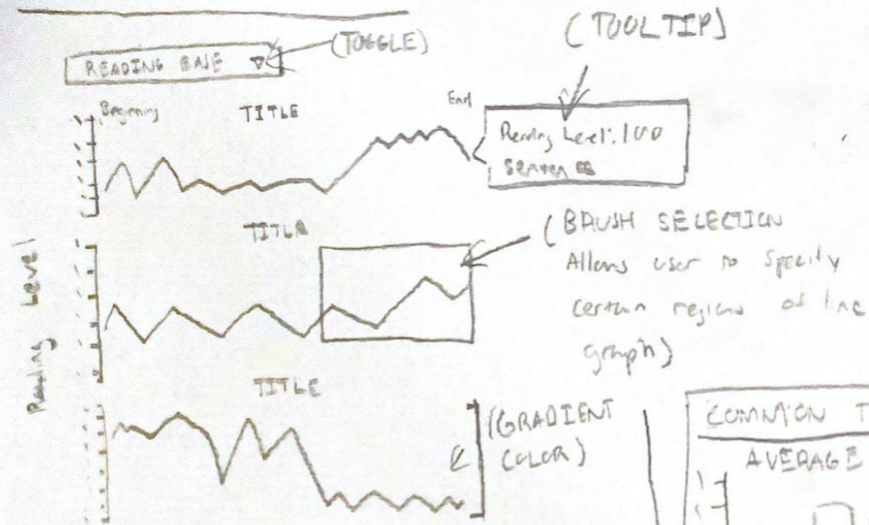 READING EASE
(TOGGLE)
(TOOLTIP)
Beginning
TITLE
End
Reading Level: 100
TITLE
(BRUSH SELECTION
Allows user to specify
certain regions of line
graph)
Reading Level
TITLE
(GRADIENT
COLOR)
COMMON T
AVERAGE